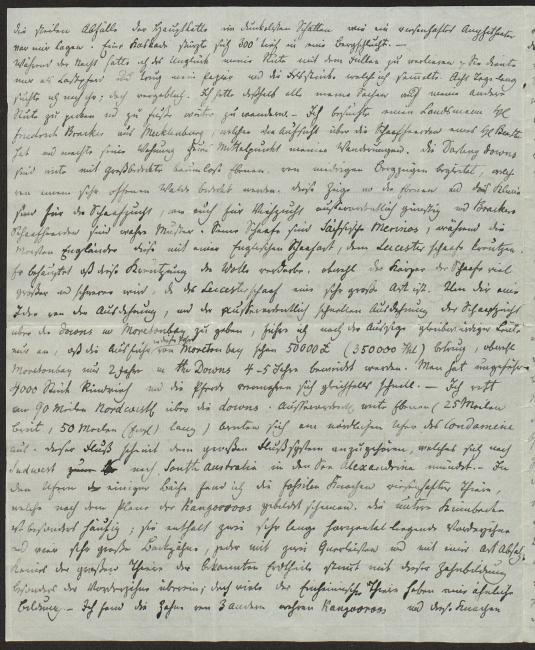 die steilen Abfälle der Hauptkette im dunkelsten Schatten wie ein riesenhaftes Amphitheater
vor mir lagen! Eine Kaskade stürzte sich 300 tief in eine Bergschlucht. —
Während der Nacht hatte ich das Unglück meine Stute mit dem Fullen zu verlieren. Sie diente
mir als Lastpferd und trug mein Papier und die Felsstücke welche ich sammelte. Acht Tage lang
suchte ich nach ihr; doch vergeblich. Ich hatte deßhalb alle meine Sachen auf meine andere
Stute zu packen und zu Fuße weiter zu wandern. — Ich besuchte einen Landsmann H
Friedrich Bracker aus Mecklenburg, welcher die Aufsicht über die Schaafheerden eines H
hat und machte seine Wohnung zum Mittelpunkt meiner Wanderungen. Die Darling downs
sind weite mit Grasbedeckte baumlose Ebenen, von niedrigen Bergzügen begleitet, welche
von einem sehr offenen Walde bedeckt werden. Diese Züge und die Ebenen und das Klima
sind für die Schaafzucht, wie auch für Viehzucht außerordentlich günstig und Brackers
Schaafheerden sind wahre Muster. Seine Schaafe sind Sächsische Merinos, während die
Meisten Engländer diese mit einer Englischen Schaafart, dem Leicester schaafe kreutzen.
Er behauptet daß diese Kreutzung die Wolle verderbe, obwohl der Körper der Schaafe viel
größer und schwerer wird, da das Leicesterschaaf eine sehr große Art ist. Um dir eine
Idee von der Ausdehnung, und der außerordentlich schnellen Ausdehnung der Schaafzucht
über die Downs und Moretonbay zu geben, führe ich nach der Aussage glaubwürdiger Leute
nur an, daß die Ausfuhr von Moretonbay schon 50000 £ (350000 Thl) betrug, obwohl
Moretonbay nur 2 Jahr und die Downs 4-5 Jahre bewohnt werden. Man hat ungefähr
4000 Stück Rindvieh und die Pferde vermehren sich gleichfalls schnell. — Ich ritt
an 90 Meilen Nordwestlich über die downs. Außerordentlich weite Ebenen (25 Meilen
breit, 50 Meilen (Engl) lang) breiten sich am nördlichen Ufer des Condamine
aus. Dieser Fluß scheint dem großen Flußsystem anzugehören, welches sich nach
Südwest nach South Australia in den See Alexandrina mündet. — In
den Ufern einiger Bäche fand ich die fossilen Knochen riesenhafter Thiere,
welche nach dem Plane der Kangooroos gebildet scheinen. Die untere Kinnbacke
ist besonders häufig; sie enthält zwei sehr lange horizontal liegende Vorderzähne
und vier sehr große Backzähne, jeder mit zwei Querleisten und mit einer Art Absatz.
Keines der großen Thiere der bekannten Erdtheile stimmt mit dieser Zahnbildung
besonders der Vorderzähne überein; doch viele der Einheimischen Thiere haben eine ähnliche
Bildung. — Ich fand die Zähne von 3 andern wahren Kangooroos und diese Knochen